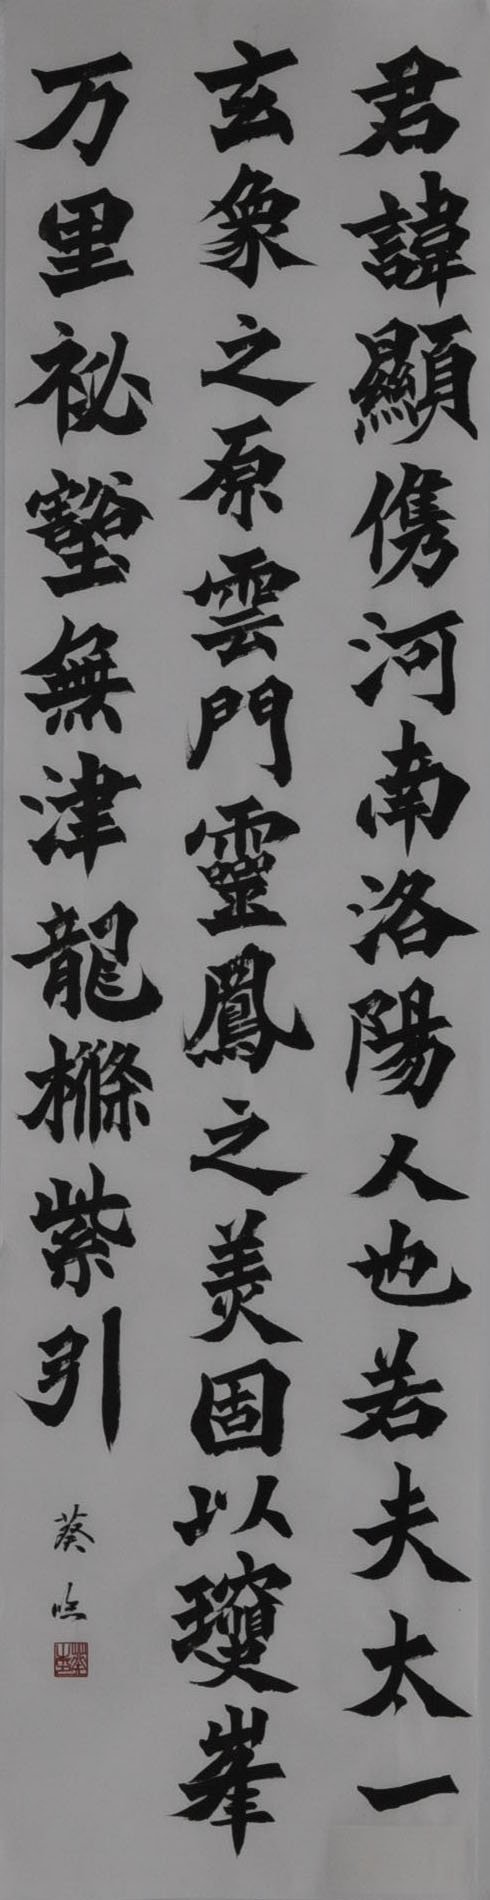 君諱顯儁河南洛陽人也若夫太一
玄象之原雲門靈鳳之美固以瓊峯
万里祕壑無津龍樤紫引
葵臨